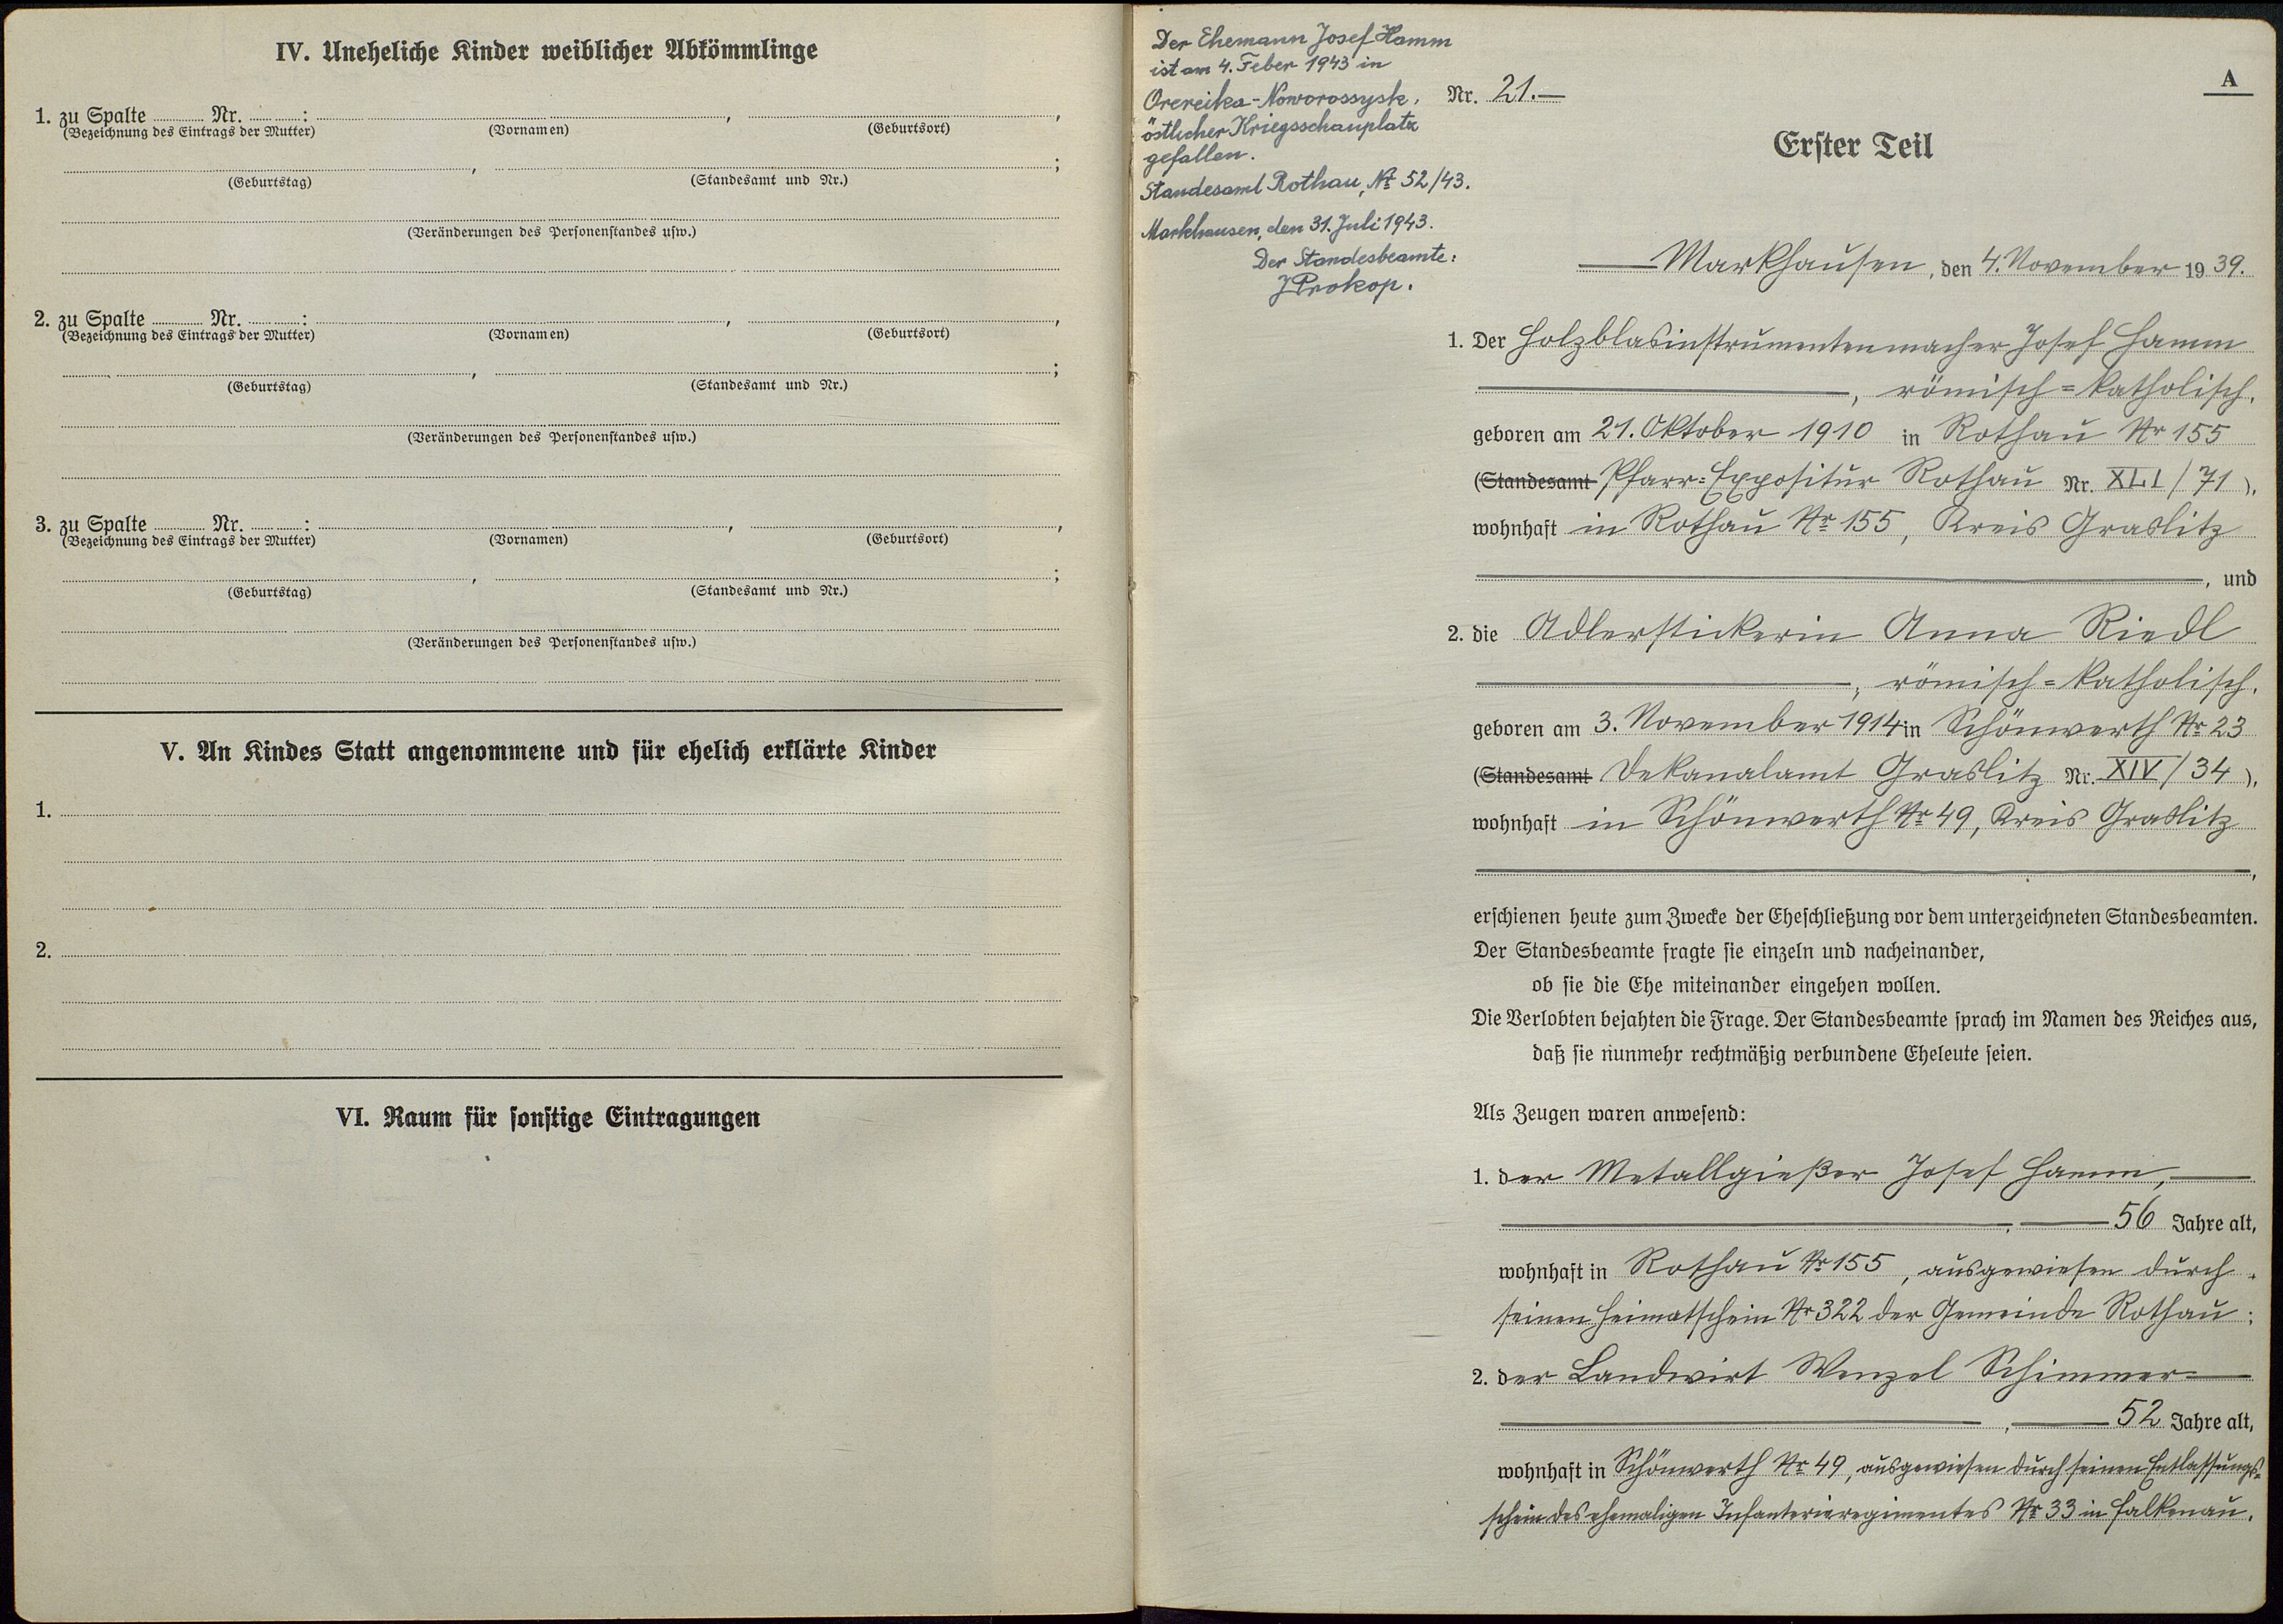 IV. Uneheliche Kinder weiblicher Abkömmlinge
1. zu Spalte ........ Nr. ........: ........, ........,
(Bezeichnung des Eintrags der Mutter) (Vornamen) (Geburtsort)
........, ........;
(Geburtstag) (Standesamt und Nr.)
(Veränderungen des Personenstandes usw.)
2. zu Spalte ........ Nr. ........: ........, ........,
(Bezeichnung des Eintrags der Mutter) (Vornamen) (Geburtsort)
........, ........;
(Geburtstag) (Standesamt und Nr.)
(Veränderungen des Personenstandes usw.)
3. zu Spalte ........ Nr. ........: ........, ........,
(Bezeichnung des Eintrags der Mutter) (Vornamen) (Geburtsort)
........, ........;
(Geburtstag) (Standesamt und Nr.)
(Veränderungen des Personenstandes usw.)
V. An Kindes Statt angenommene und für ehelich erklärte Kinder
1.
2.
VI. Raum für sonstige Eintragungen
Der Ehemann Josef Hamm
ist am 4. Feber 1943 in
Osereika-Noworossysk,
östlicher Kriegsschauplatz
gefallen.
Standesamt Rothau, No 52/43.
Markhausen, den 31. Juli 1943.
Der Standesbeamte:
JProkop.
A
Nr. 21.—
Erster Teil
Markhausen, den 4. November 1939.
1. Der Holzblasinstrumentenmacher Josef Hamm
, römisch=katholisch,
geboren am 21. Oktober 1910 in Rothau Nr 155
(Standesamt Pfarr=Expositur Rothau Nr. XLI/71),
wohnhaft in Rothau Nr 155, Kreis Graslitz
, und
2. die Adlerstickerin Anna Riedl
, römisch=katholisch,
geboren am 3. November 1914 in Schönwerth Nr 23
(Standesamt Dekanalamt Graslitz Nr. XIV/34),
wohnhaft in Schönwerth Nr 49, Kreis Graslitz
,
erschienen heute zum Zwecke der Eheschließung vor dem unterzeichneten Standesbeamten.
Der Standesbeamte fragte sie einzeln und nacheinander,
ob sie die Ehe miteinander eingehen wollen.
Die Verlobten bejahten die Frage. Der Standesbeamte sprach im Namen des Reiches aus,
daß sie nunmehr rechtmäßig verbundene Eheleute seien.
Als Zeugen waren anwesend:
1. der Metallgießer Josef Hamm,
, 56 Jahre alt,
wohnhaft in Rothau Nr 155, ausgewiesen durch
seinen Heimatschein Nr 322 der Gemeinde Rothau;
2. der Landwirt Wenzel Schimmer
, 52 Jahre alt,
wohnhaft in Schönwerth Nr 49, ausgewiesen durch seinen Entlassungs=
schein des ehemaligen Infanterieregimentes Nr 33 in Falkenau.